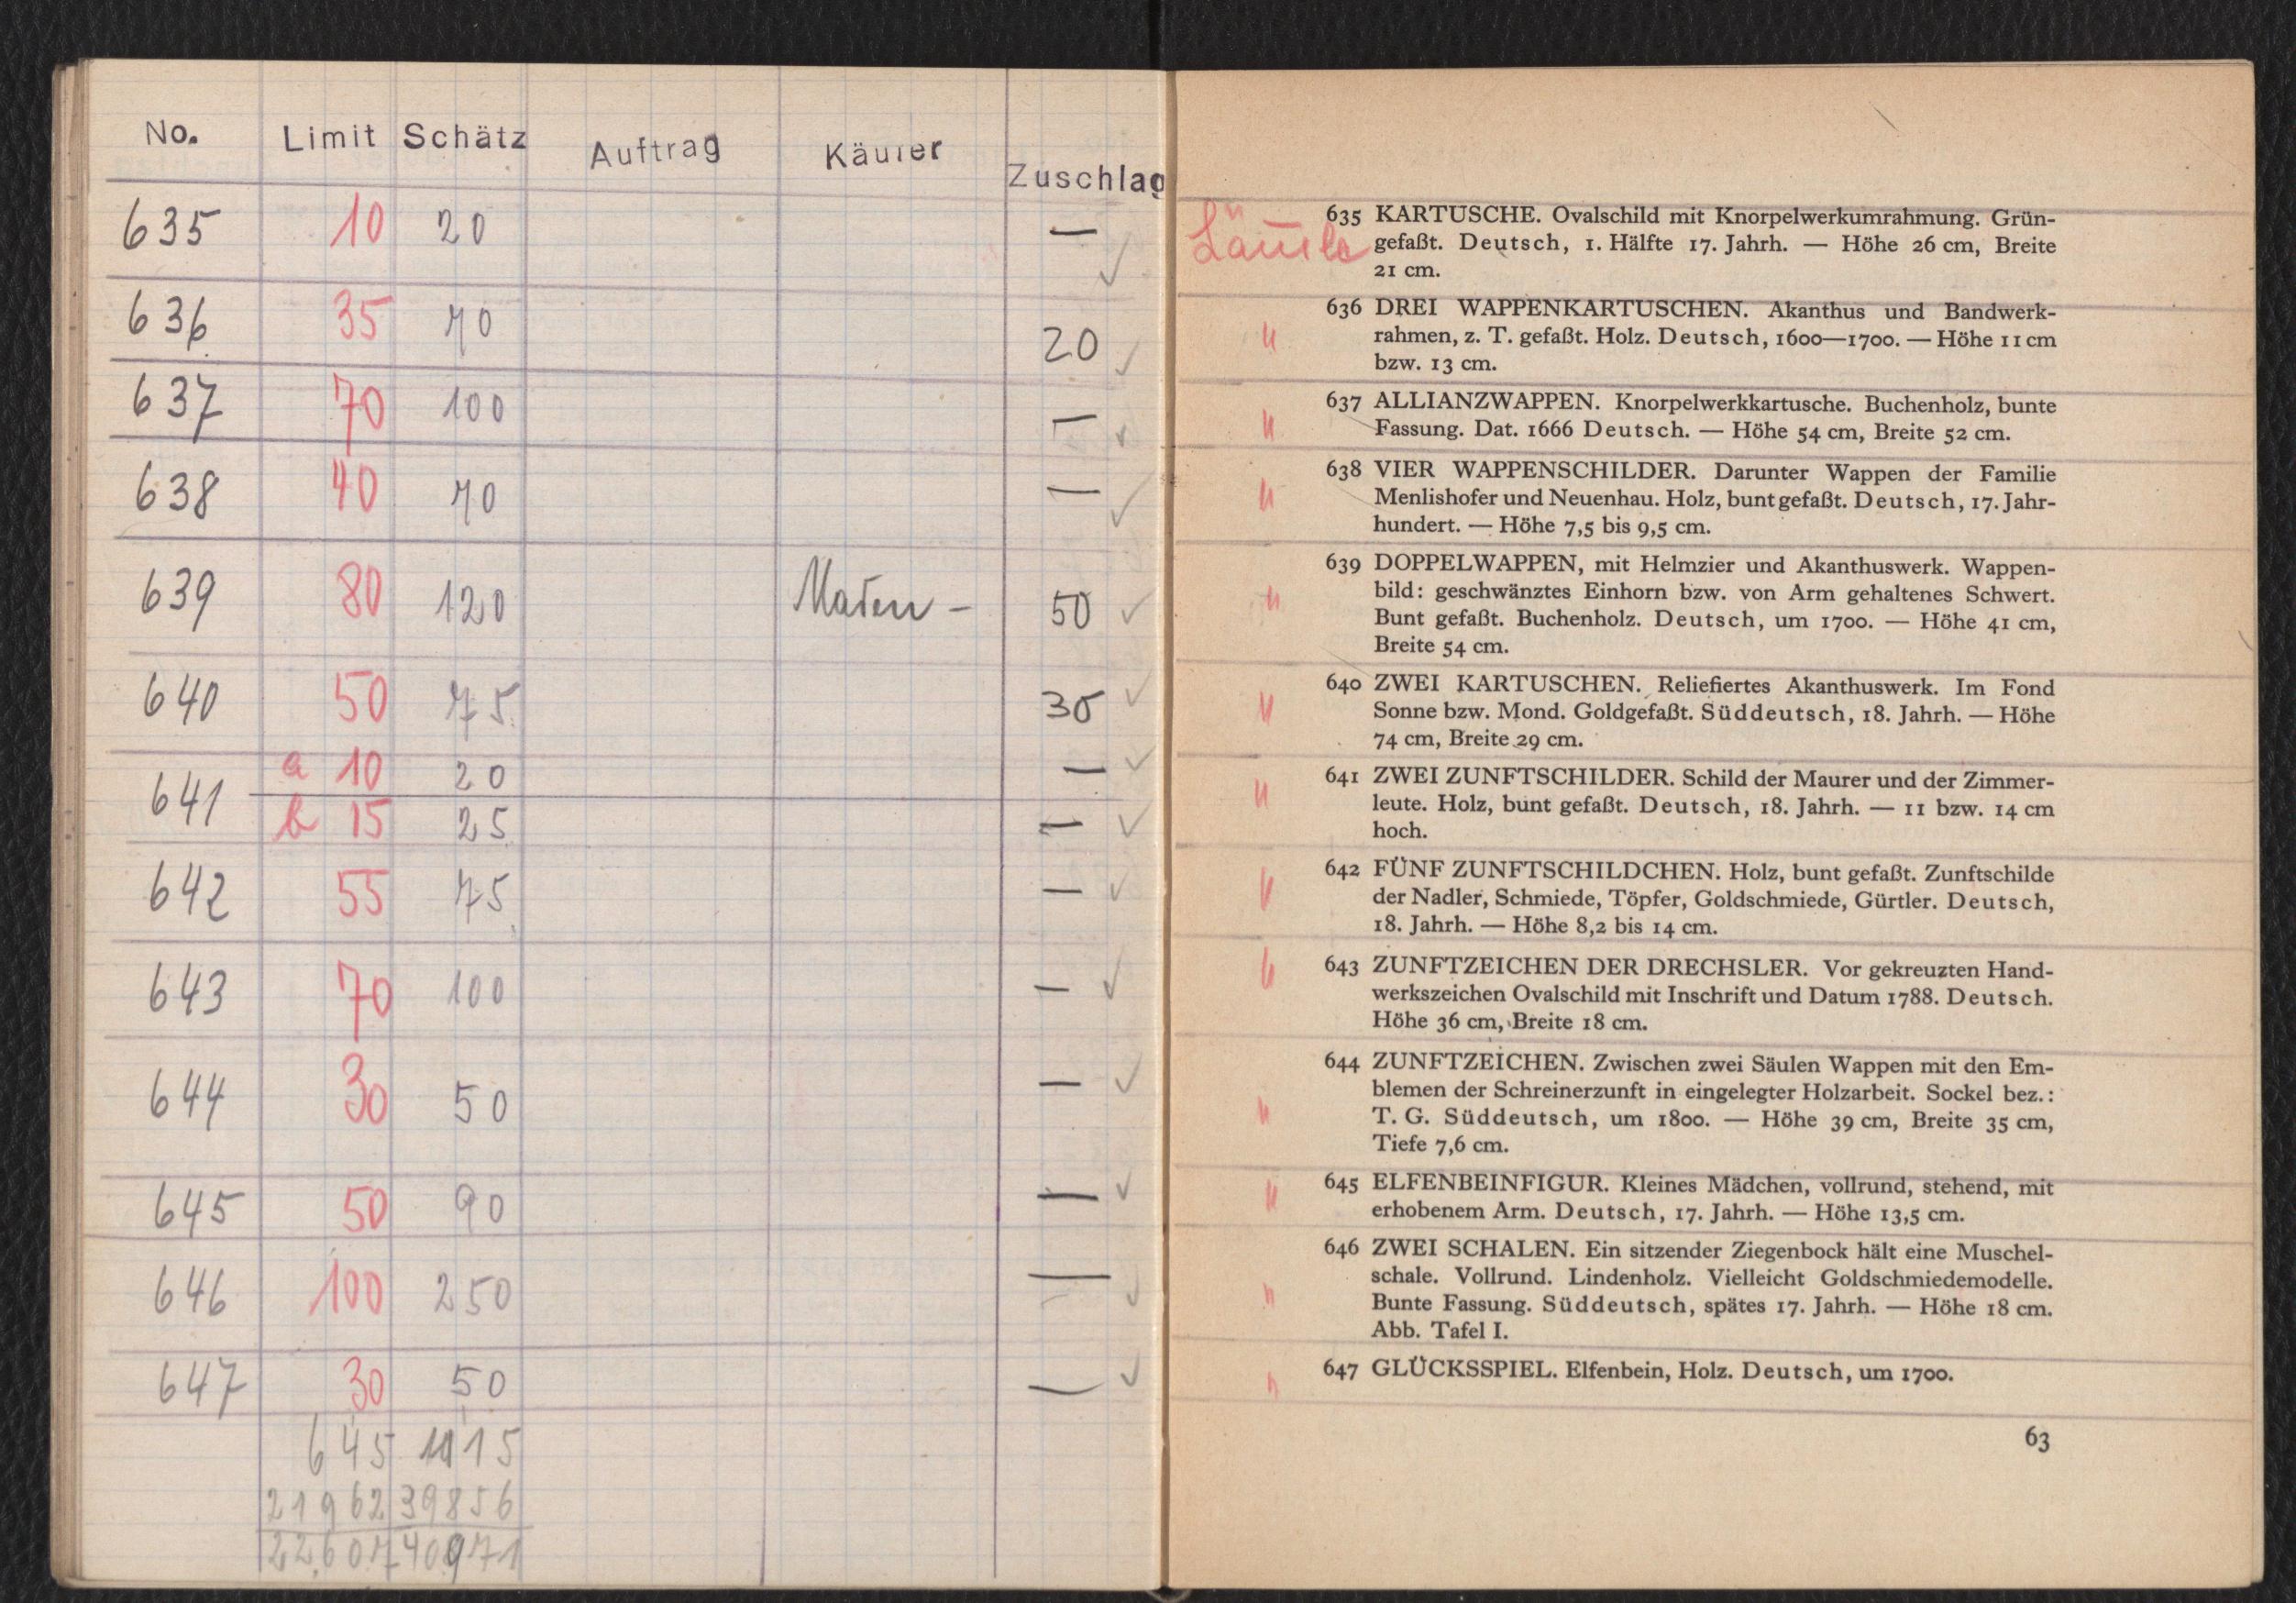 No. Limit Schätz Auftrag Käufer Zuschlag
635 10 20 —
636 35 70 20
637 70 100 —
638 40 70 —
639 80 120 50
640 50 75 30
641 a 10 20 —
b 15 25 —
642 55 75 —
643 70 100 —
644 30 50 —
645 50 90 —
646 100 250 —
647 30 50 —
645 1115
21962 39856
22.607 40971
635 KARTUSCHE. Ovalschild mit Knorpelwerkumrahmung. Grün-
gefaßt. Deutsch, 1. Hälfte 17. Jahrh. — Höhe 26 cm, Breite
21 cm.
636 DREI WAPPENKARTUSCHEN. Akanthus und Bandwerk-
rahmen, z. T. gefaßt. Holz. Deutsch, 1600—1700. — Höhe 11 cm
bzw. 13 cm.
637 ALLIANZWAPPEN. Knorpelwerkkartusche. Buchenholz, bunte
Fassung. Dat. 1666 Deutsch. — Höhe 54 cm, Breite 52 cm.
638 VIER WAPPENSCHILDER. Darunter Wappen der Familie
Menlishofer und Neuenhau. Holz, bunt gefaßt. Deutsch, 17. Jahr-
hundert. — Höhe 7,5 bis 9,5 cm.
639 DOPPELWAPPEN, mit Helmzier und Akanthuswerk. Wappen-
bild: geschwänztes Einhorn bzw. von Arm gehaltenes Schwert.
Bunt gefaßt. Buchenholz. Deutsch, um 1700. — Höhe 41 cm,
Breite 54 cm.
640 ZWEI KARTUSCHEN. Reliefiertes Akanthuswerk. Im Fond
Sonne bzw. Mond. Goldgefaßt. Süddeutsch, 18. Jahrh. — Höhe
74 cm, Breite 29 cm.
641 ZWEI ZUNFTSCHILDER. Schild der Maurer und der Zimmer-
leute. Holz, bunt gefaßt. Deutsch, 18. Jahrh. — 11 bzw. 14 cm
hoch.
642 FÜNF ZUNFTSCHILDCHEN. Holz, bunt gefaßt. Zunftschilde
der Nadler, Schmiede, Töpfer, Goldschmiede, Gürtler. Deutsch,
18. Jahrh. — Höhe 8,2 bis 14 cm.
643 ZUNFTZEICHEN DER DRECHSLER. Vor gekreuzten Hand-
werkszeichen Ovalschild mit Inschrift und Datum 1788. Deutsch.
Höhe 36 cm, Breite 18 cm.
644 ZUNFTZEICHEN. Zwischen zwei Säulen Wappen mit den Em-
blemen der Schreinerzunft in eingelegter Holzarbeit. Sockel bez.:
T. G. Süddeutsch, um 1800. — Höhe 39 cm, Breite 35 cm,
Tiefe 7,6 cm.
645 ELFENBEINFIGUR. Kleines Mädchen, vollrund, stehend, mit
erhobenem Arm. Deutsch, 17. Jahrh. — Höhe 13,5 cm.
646 ZWEI SCHALEN. Ein sitzender Ziegenbock hält eine Muschel-
schale. Vollrund. Lindenholz. Vielleicht Goldschmiedemodelle.
Bunte Fassung. Süddeutsch, spätes 17. Jahrh. — Höhe 18 cm.
Abb. Tafel I.
647 GLÜCKSSPIEL. Elfenbein, Holz. Deutsch, um 1700.
63